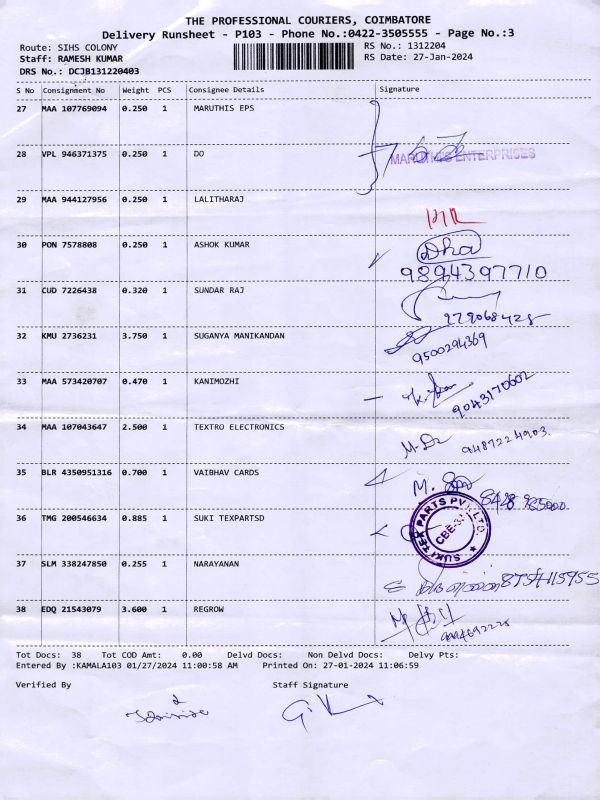 THE PROFESSIONAL COURIERS, COIMBATORE
Delivery Runsheet - P103 - Phone No.:0422-3505555 - Page No.:3
Route: SIHS COLONY
RS No.: 1312204
Staff: RAMESH KUMAR
RS Date: 27-Jan-2024
DRS No.: DCJB131220403
S No Consignment No Weight PCS Consignee Details Signature
27 MAA 107769094 0.250 1 MARUTHIS EPS
28 VPL 946371375 0.250 1 DO
MARUTHIS ENTERPRISES
29 MAA 944127956 0.250 1 LALITHARAJ
30 PON 7578808 0.250 1 ASHOK KUMAR
Dha
9894397710
31 CUD 7226438 0.320 1 SUNDAR RAJ
32 KMU 2736231 3.750 1 SUGANYA MANIKANDAN
9500294369
33 MAA 573420707 0.470 1 KANIMOZHI
9043170602
34 MAA 107043647 2.500 1 TEXTRO ELECTRONICS
9487224903
35 BLR 4350951316 0.700 1 VAIBHAV CARDS
36 TMG 200546634 0.885 1 SUKI TEXPARTSD
SUKI TEX PARTS PVT. LTD.
37 SLM 338247850 0.255 1 NARAYANAN
38 EDQ 21543079 3.600 1 REGROW
Tot Docs: 38 Tot COD Amt: 0.00 Delvd Docs: Non Delvd Docs: Delvy Pts:
Entered By :KAMALA103 01/27/2024 11:00:58 AM Printed On: 27-01-2024 11:06:59
Verified By Staff Signature